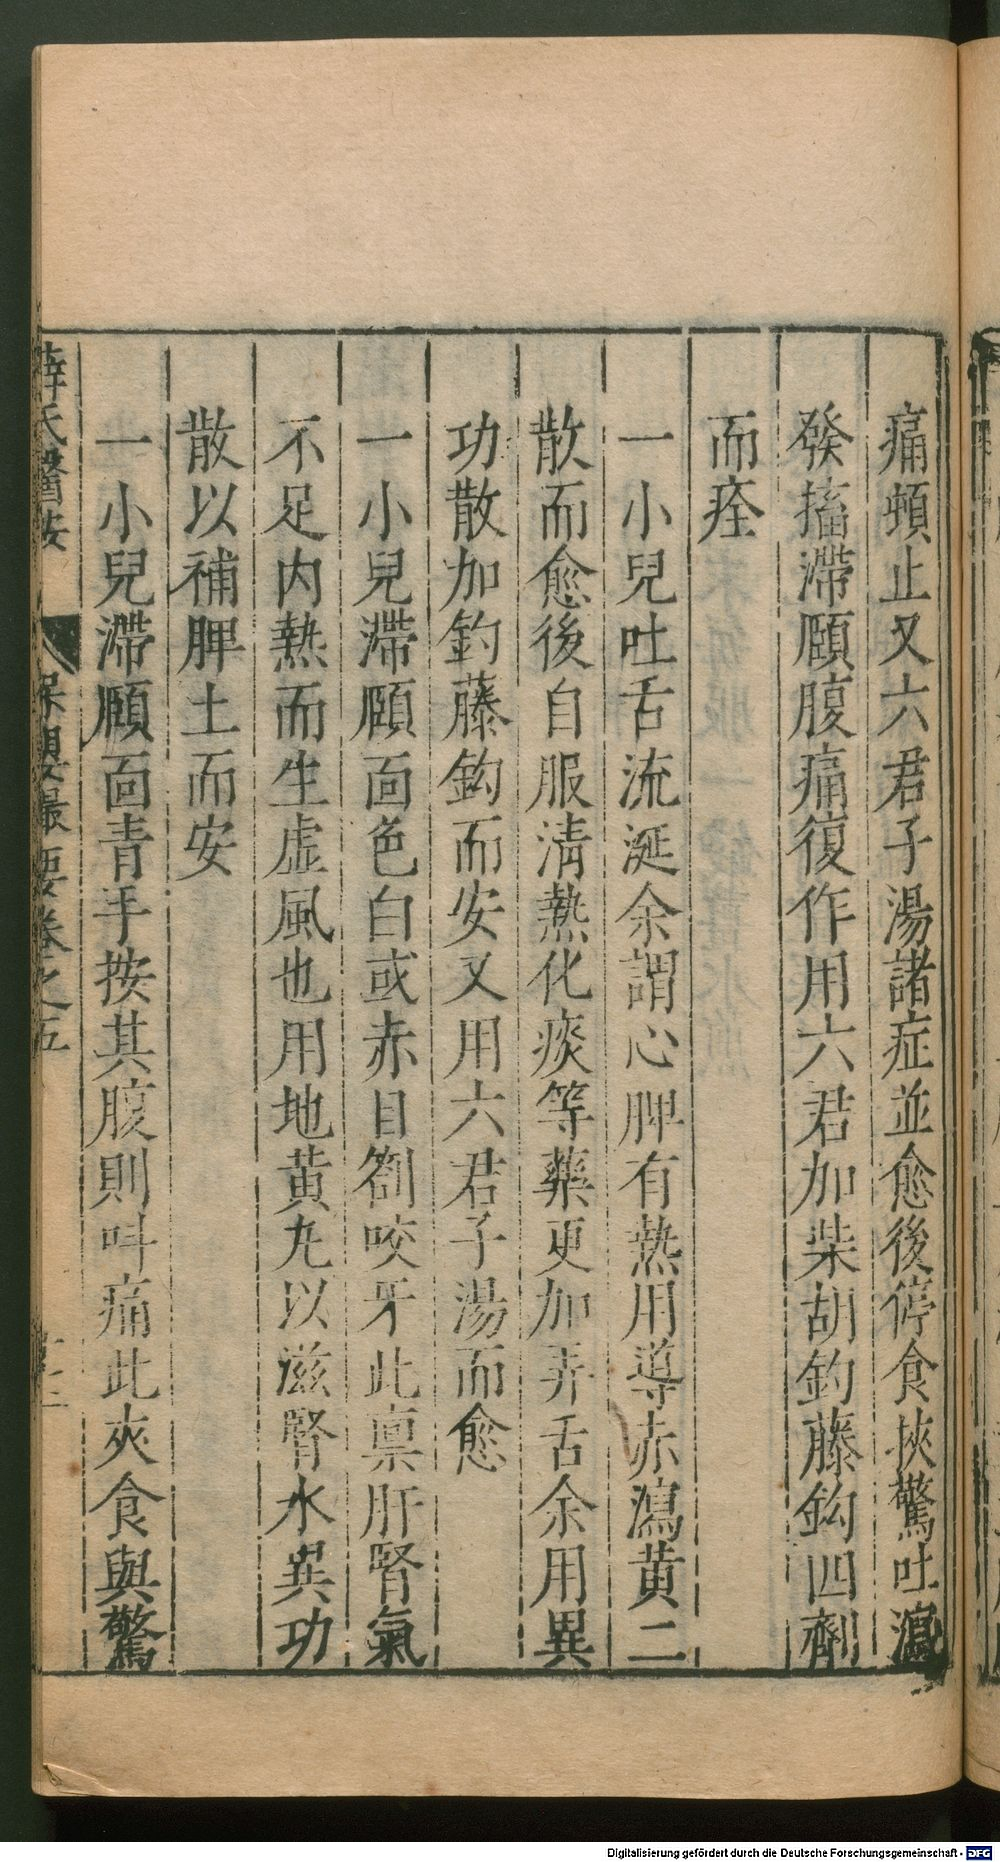 痛頓止又六君子湯諸症並愈後停食挾驚吐瀉
發搐滯頤腹痛復作用六君加柴胡釣藤鈎四劑
而痊
一小兒吐舌流涎余謂心脾有熱用導赤瀉黄二
散而愈後自服淸熱化痰等藥更加弄舌余用異
功散加釣藤鈎而安又用六君子湯而愈
一小兒滯頤面色白或赤目劄咬牙此禀肝腎氣
不足内熱而生虛風也用地黄丸以滋腎水異功
散以補脾土而安
一小兒滯頤面青手按其腹則叫痛此夾食與驚
薛氏醫按 保嬰撮要卷之五
Digitalisierung gefördert durch die Deutsche Forschungsgemeinschaft - DFG